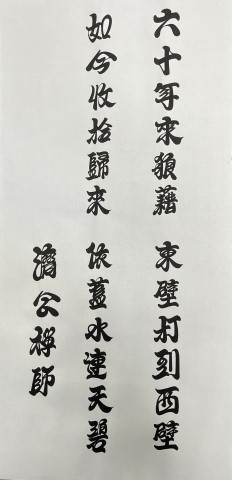 六十年來狼藉 東壁打到西壁
如今收拾歸來 依蓋水連天碧
濟公禪師